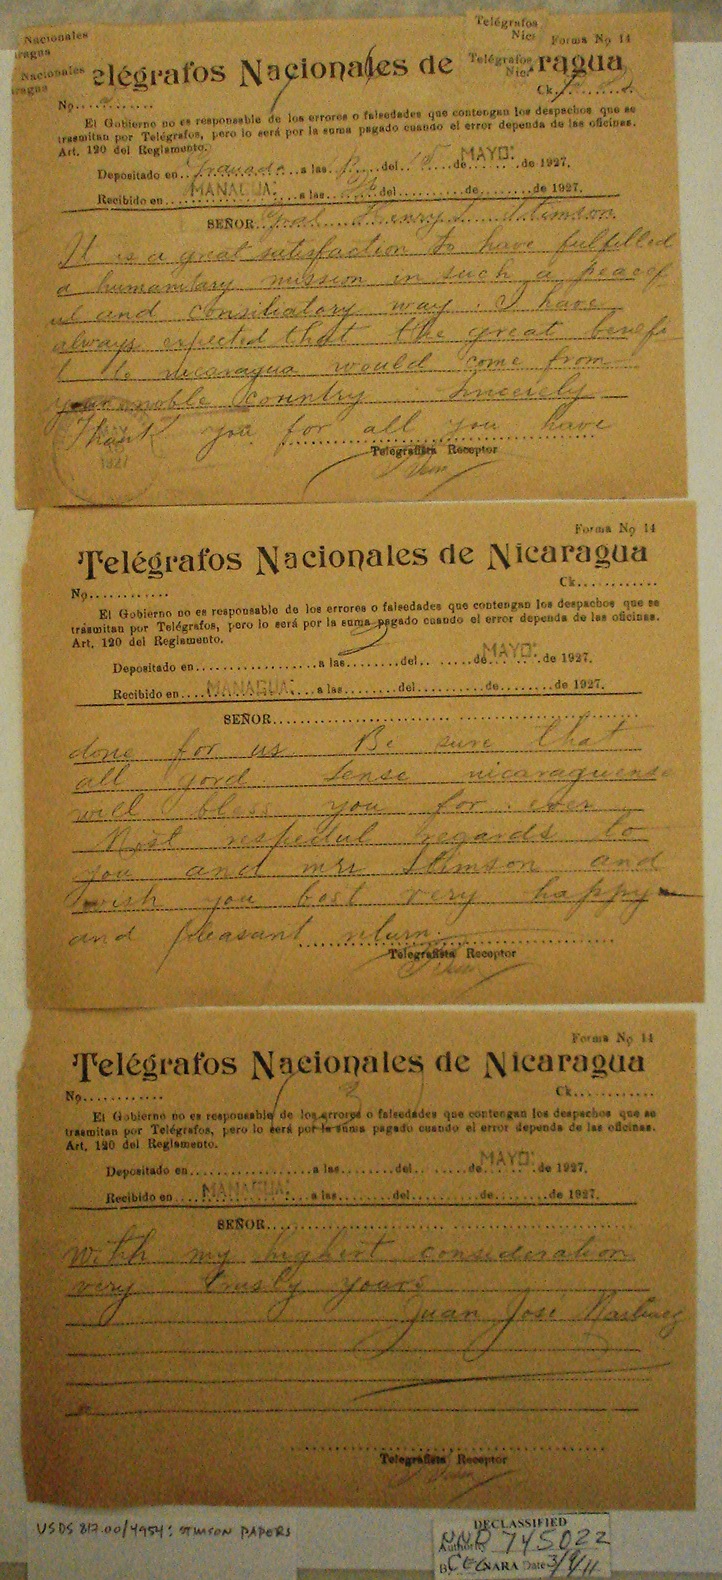 Nacionales
ragua
Nacionales
ragua
Telégrafos
Nic
Telégrafos
Nic
Forma No 14
elégrafos Nacionales de ragua
No.
Ck.
El Gobierno no es responsable de los errores o falsedades que contengan los despachos que se
trasmitan por Telégrafos, pero lo será por la suma pagado cuando el error dependa de las oficinas.
Art. 120 del Reglamento.
Depositado en Granada a las del 15 de MAYO: de 1927.
Recibido en MANAGUA: a las del de de 1927.
SEÑOR Gral Henry L Stimson
It is a great satisfaction to have fulfilled
a humanitary mission in such a peacef
ul and consiliatory way. I have
always expected that the great benefi
t to nicaragua would come from
your noble country Sincerely
Thank you for all you have
1927
Telegrafista Receptor
Forma No 14
Telégrafos Nacionales de Nicaragua
No.
Ck.
El Gobierno no es responsable de los errores o falsedades que contengan los despachos que se
trasmitan por Telégrafos, pero lo será por la suma pagado cuando el error dependa de las oficinas.
Art. 120 del Reglamento.
2
Depositado en a las del de MAYO: de 1927.
Recibido en MANAGUA: a las del de de 1927.
SEÑOR
done for us Be sure that
all gord sense nicaraguense
will bless you for ever
Most respectul regards to
you and mrs Stimson and
wish you bost very happy
and pleasant return.
Telegrafista Receptor
Forma No 14
Telégrafos Nacionales de Nicaragua
No.
3
Ck.
El Gobierno no es responsable de los errores o falsedades que contengan los despachos que se
trasmitan por Telégrafos, pero lo será por la suma pagado cuando el error dependa de las oficinas.
Art. 120 del Reglamento.
Depositado en a las del de MAYO: de 1927.
Recibido en MANAGUA: a las del de de 1927.
SEÑOR
with my highert consideration
very trusly yours
Juan José Martinez
Telegrafista Receptor
USDS 817.00/4954: STIMSON PAPERS
DECLASSIFIED
Authority NND 745022
By CEG NARA Date 3/9/11